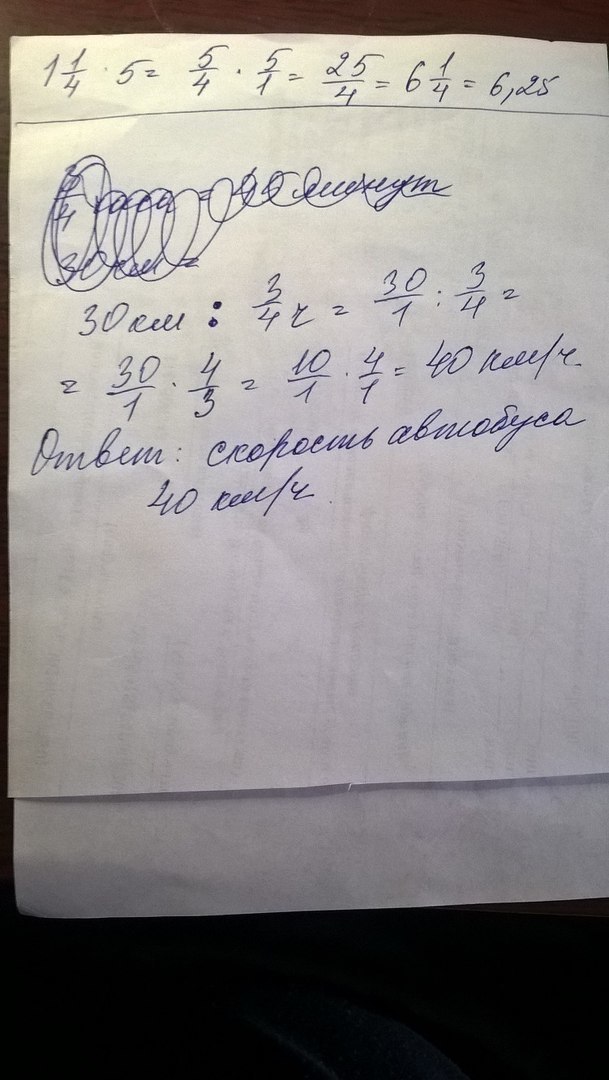 1 1/4 · 5 = 5/4 · 5/1 = 25/4 = 6 1/4 = 6,25
часа = минут
30 км =
30 км : 3/4 ч = 30/1 : 3/4 =
= 30/1 · 4/3 = 10/1 · 4/1 = 40 км/ч.
Ответ: скорость автобуса
40 км/ч.